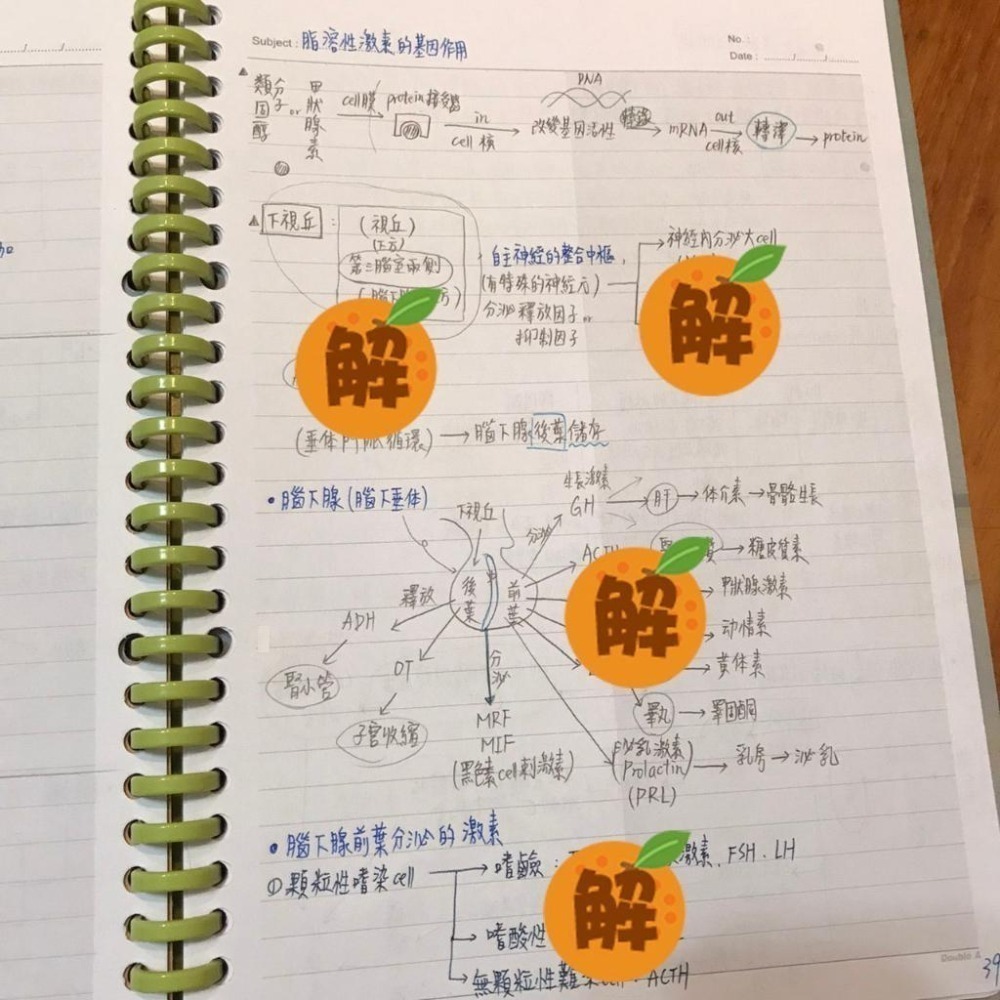 Subject : 脂溶性激素的基因作用
No. :
Date :
類固醇分子 or 甲狀腺素
cell膜
protein接受器
in
cell核
DNA
改變基因活性
轉錄
mRNA
out
cell核
轉譯
protein
下視丘 :
(視丘)
(下方)
第三腦室兩側
自主神經的整合中樞,
(有特殊的神經元)
分泌釋放因子or
抑制因子
神經內分泌大cell
解
解
(垂体門脈循環) → 腦下腺後葉儲存
• 腦下腺(腦下垂体)
下視丘
後葉
前葉
釋放
ADH
腎小管
OT
子宮收縮
分泌
MRF
MIF
(黑色素cell刺激素)
分泌
生長激素
GH
肝 → 体介素 → 骨骼生長
ACTH
糖皮質素
甲狀腺激素
动情素
黃体素
解
睪丸 → 睪固酮
泌乳激素
Prolactin
(PRL)
乳房 → 泌乳
• 腦下腺前葉分泌的激素
①顆粒性嗜染cell
嗜鹼 :
激素、FSH、LH
嗜酸性
解
無顆粒性難染cell
ACTH
Double A
39